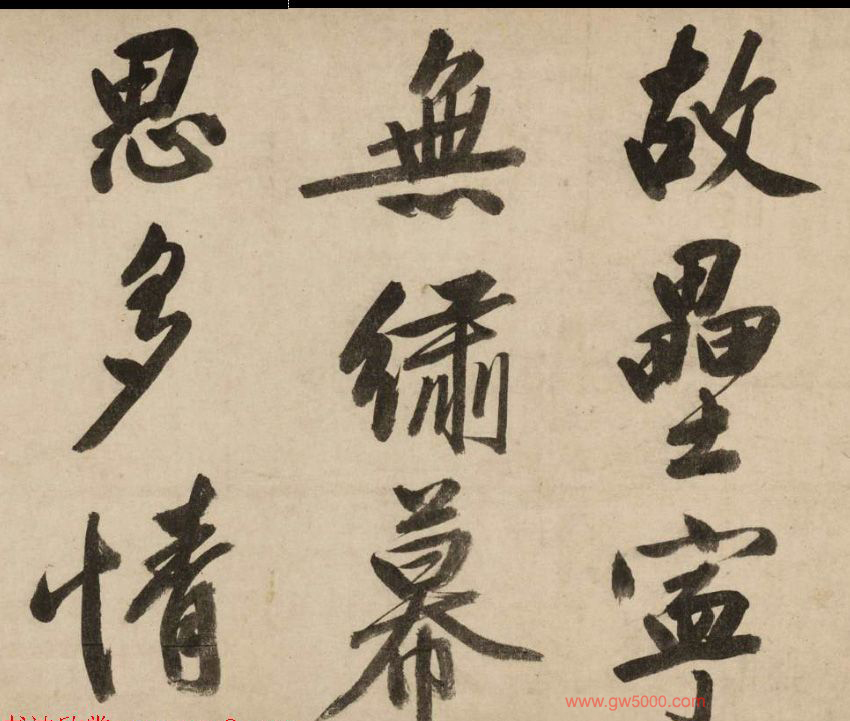 故壘寧
無繡幕
思多情
www.gw5000.com